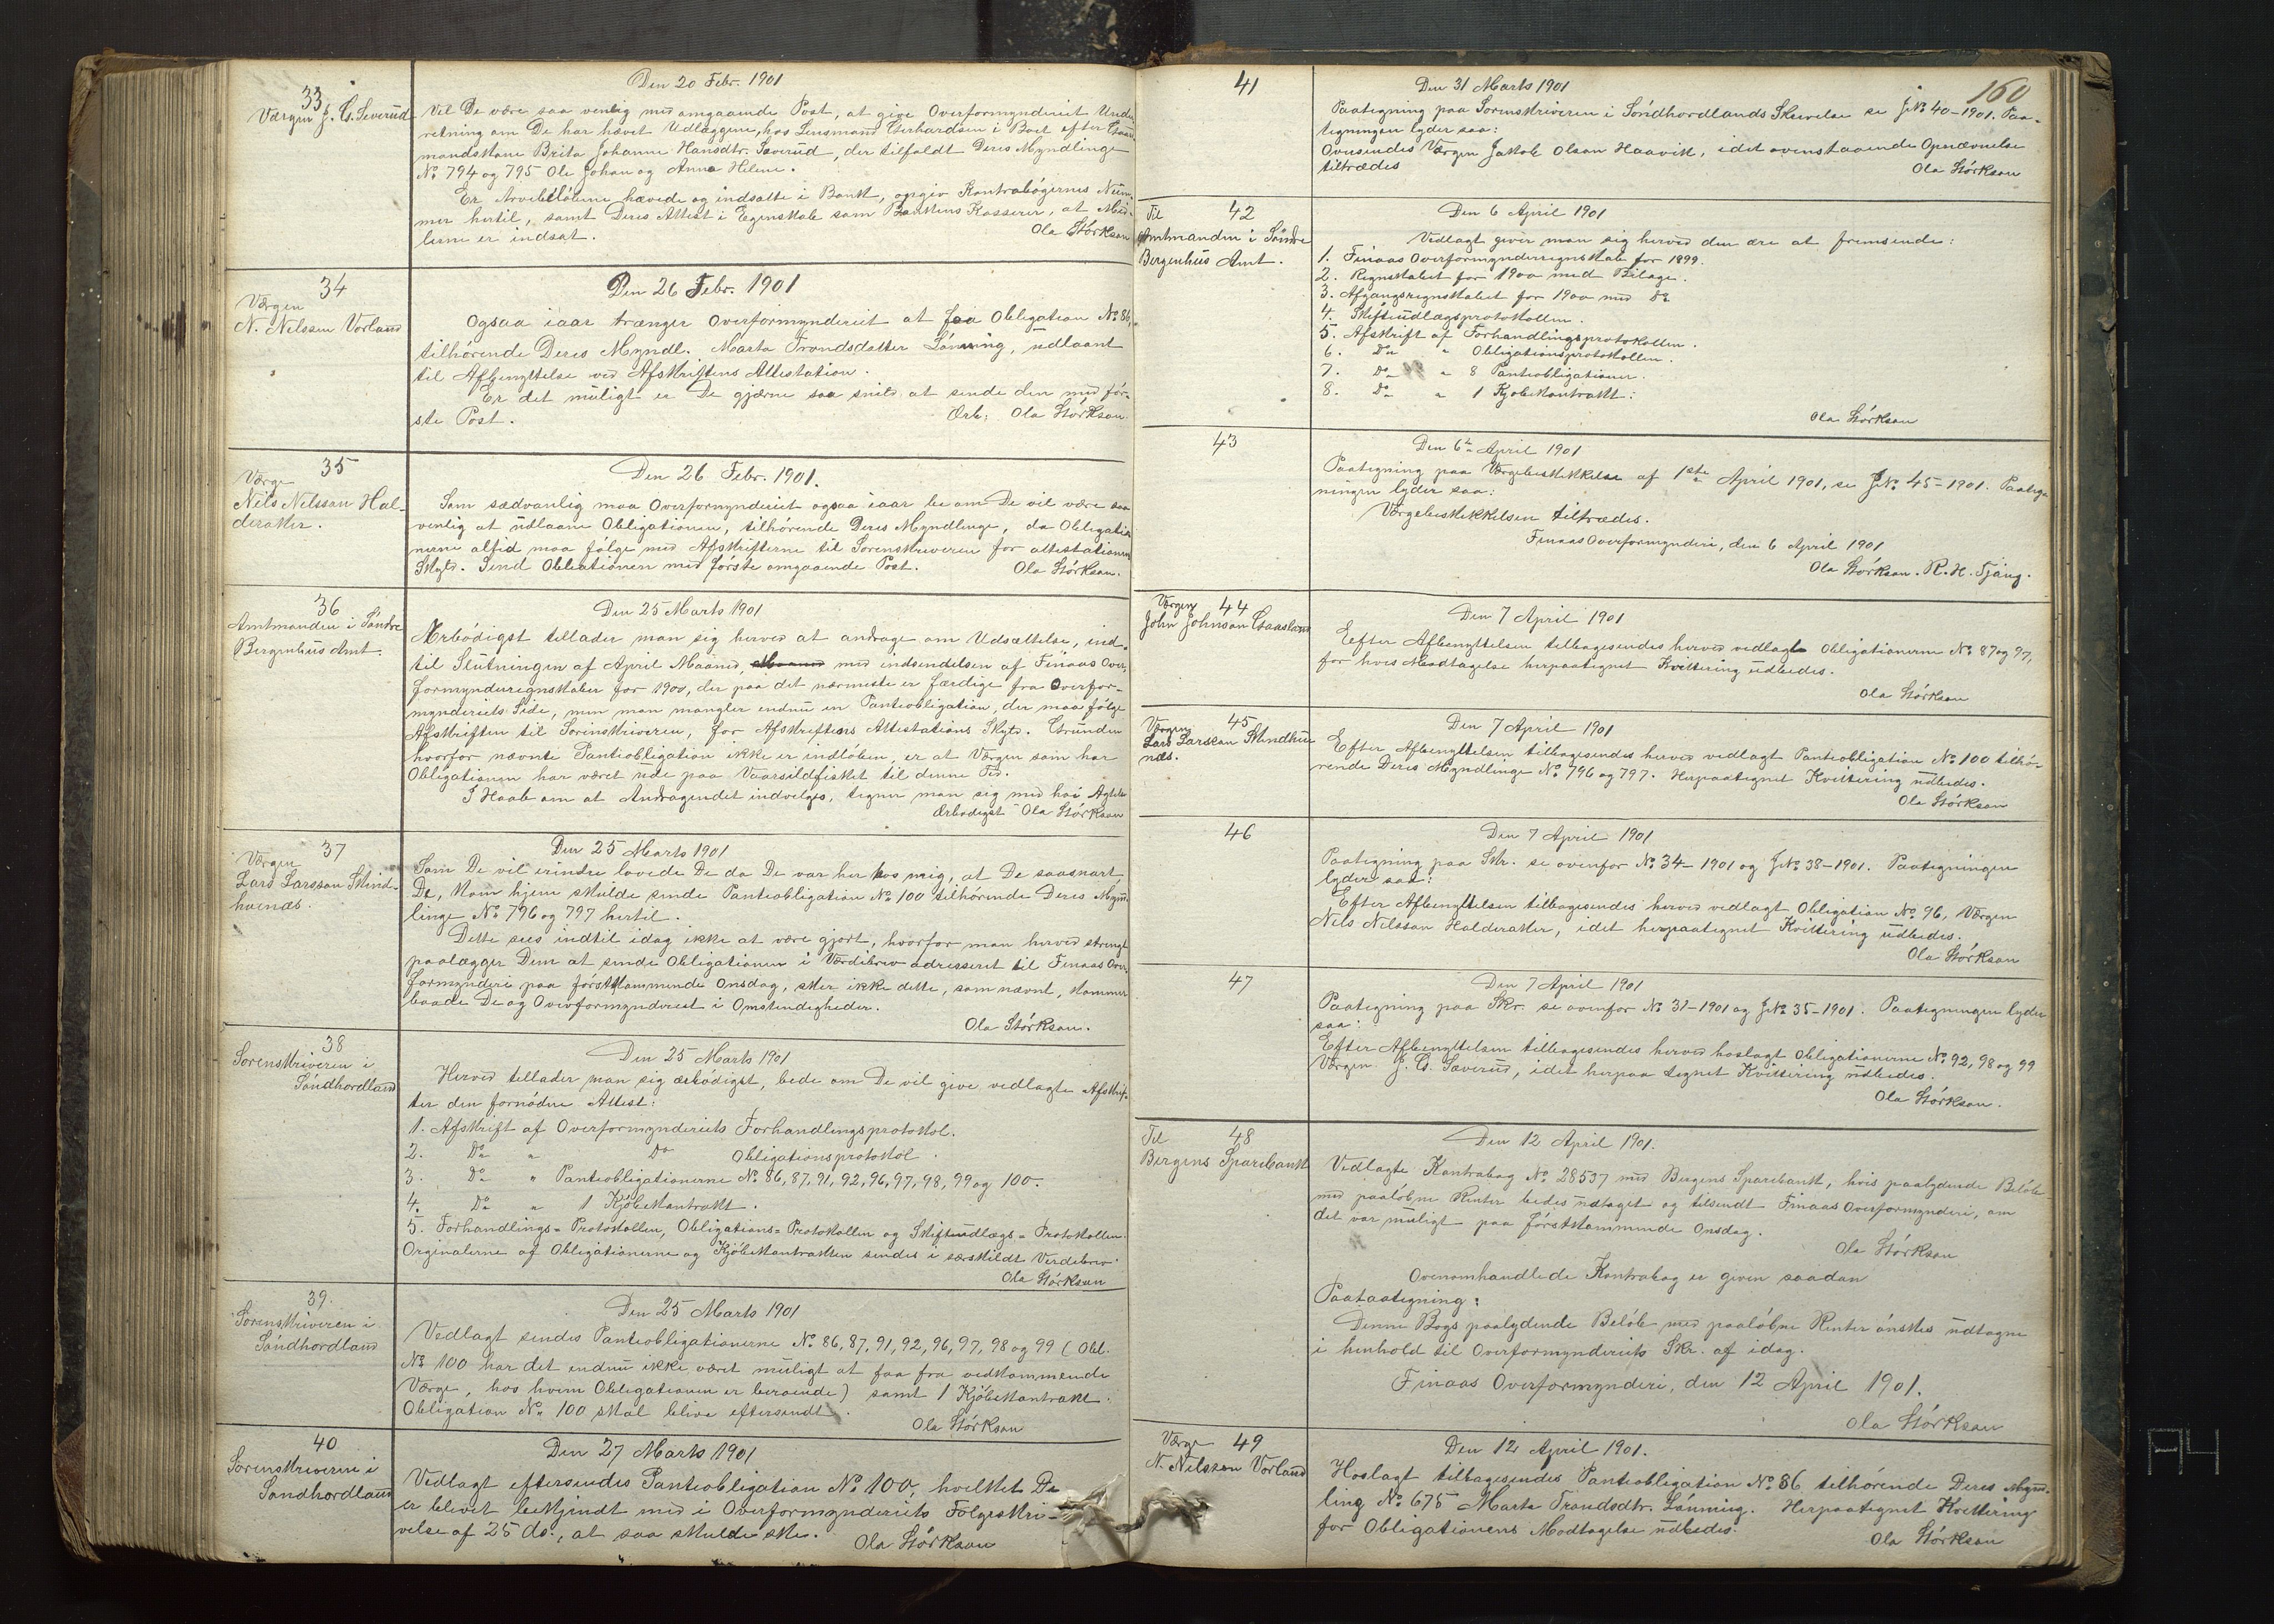 33
Værgen J. G. Severud
Den 20 Febr. 1901
Vil De være saa venlig med omgaaende Post, at give Overformynderiet Under
retning om De har hævet Udlæggene, hos Lensmand Gerhardsen i Boet efter Gaard
mandskone Brita Johanne Hansdtr. Sæverud, der tilfaldt Deres Myndlinge
No 794 og 795 Ole Johan og Anna Helene.
Er Arvebelöbene hævede og indsatte i Bank, opgiv Kontrabögernes Num
mer hertil, samt Deres Attest i Egenskab som Bankens Kasserer, at Mid-
lerne er indsat.
Ola Störkson
34
Værgen
N. Nelssen Vorland
Den 26 Febr. 1901
Ogsaa iaar trænger Overformynderiet at faa Obligation No 86,
tilhörende Deres Myndl. Marta Trondsdatter Lönning, udlaant
til Afbenyttelse ved Afskriftens Attestation.
Er det muligt er De gjærne saa snild at sende den med för-
ste Post.
Ærb: Ola Störkson
35
Værge
Nils Nilsson Hal-
deraker.
Den 26 Febr. 1901.
Som sædvanlig maa Overformynderiet ogsaa iaar be om De vil være saa
venlig at udlaane Obligationen, tilhörende Deres Myndlinge, da Obligatio
nerne altid maa fölge med Afskrifterne til Sorenskriveren for attestationens
Skyld. Send Obliationen med förste omgaaende Post.
Ola Störkson.
36
Amtmanden i Söndre
Bergenhus Amt.
Den 25 Marts 1901
Ærbödigst tellader man sig herved at andrage om Udsættelse, ind-
til Slutningen af April Maaned, med indsendelsen af Finaas Over,
formynderregnskaber for 1900, der paa det nærmeste er færdige fra Overfor-
mynderiets Side, men man mangler endnu en Panteobligation, der maa fölge
Afskriften til Sorenskriveren, for Afskriftens Attestations Skyld. Grunden
hvorfor nævnte Panteobligation ikke er indlöben, er at Værgen som har
Obligationen har været ude paa Vaarsildfisket til denne Tid.
I Haab om at Andragendet indvelges, tegner man sig med höi Agtelse
Ærbodigst Ola Störkson
37
Værgen
Lars Larsson Skind-
huenæs.
Den 25 Marts 1901
Som De vil erindre lovede De da De var her hos mig, at De saasnart
De, kom hjem skulde sende Panteobligation No 100 tilhörende Deres Mynd-
linge No 796 og 797 hertil.
Dette sees indtil idag ikke at være gjort, hvorfor man herved strengt
paalægger Dem at sende Obligationen i Værdibrev adresseret til Finaas Over-
formynderi paa förstkommende Onsdag, sker ikke dette, som nævnt, kommer
baade De og Overformynderiet i Omstendigheder.
Ola Störkson.
38
Sorenskriveren i
Söndhordland
Den 25 Marts 1901
Herved tellader man sig ærbödigst, bede om De vil give vedlagte Afskrif-
ter den fornödne Attest:
1. Afskrift af Overformynderiets Forhandlingsprotokol.
2. Do " Do Obligationsprotokol.
3. Do " Panteobligationerne No 86, 87, 91, 92, 96, 97, 98, 99 og 100.
4. Do " 1 Kjöbekontrakt.
5. Forhandlings-Protokollen, Obligations-Protokollen og Skifteudlægs-Protokollen.
Orginalerne af Obligationerne og Kjöbekontrakten sendes i særskildt Verdibrev.
Ola Störkson
39.
Sorenskriveren i
Söndhordland
Den 25 Marts 1901
Vedlagt sendes Panteobligationerne No 86, 87, 91, 92, 96, 97, 98 og 99 (Obl.
No 100 har det endnu ikke været muligt at faa fra vedkommende
Værge, hos hvem Obligationen er beroende) samt 1 Kjöbekontrakt.
Obligation No 100 skal blive eftersendt.
Ola Störkson
40
Sorenskriveren i
Söndhordland
Den 27 Marts 1901
Vedlagt eftersendes Panteobligation No 100, hvilket De
er blevet bekjendt med i Overformynderiets Fölgeskri-
velse af 25 ds., at saa skulde ske.
Ola Störkson
160
41
Den 31 Marts 1901
Paategning paa Sorenskriveren i Söndhordlands Skrivelse se J.No 40-1901. Paa-
tegningen lyder saa:
Oversendes Værgen Jakob Olson Haavik, idet ovenstaaende Opnævnelse
tiltrædes
Ola Störkson
42
Til
Amtmanden i Söndre
Bergenhus Amt.
Den 6 April 1901
Vedlagt giver man sig herved den ære at fremsende:
1. Finaas Overformynderregnskab for 1899.
2. Regnskabet for 1900 med Bilage.
3. Afgangsregnskabet for 1900 med Do
4. Skifteudlægsprotokollen.
5. Afskrift af Forhandlingsprotokollen.
6. Do " Obligationsprotokollen.
7. Do " 8 Panteobligationer.
8. Do " 1 Kjøbekontrakt:
Ola Störkson
43
Den 6te April 1901
Paategning paa Værgebeskikkelse af 1ste April 1901, se J.No 45-1901. Paateg-
ningen lyder saa:
Værgebeskikkelsen tiltrædes.
Finaas Overformynderi, den 6 April 1901
Ola Störkson. R. H. Tjäng.
44
Værgen
John Johnson Gaasland
Den 7 April 1901
Eefter Afbenyttelsen tilbagesendes herved vedlagt Obligationerne No 87 og 97,
for hvis Modtagelse herpaategnet Kvittering udbedes.
Ola Störkson
45
Værgen
Lars Larsson Skindhue
næs.
Den 7 April 1901
Efter Afbenyttelsen tilbagesendes herved vedlagt Panteobligation No 100 tilhö-
rende Deres Myndlinge No 796 og 797. Herpaategnet Kvittering udbedes.
Ola Störkson
46
Den 7 April 1901
Paategning paa Skr. se ovenfor No 34-1901 og J.No 38-1901. Paategningen
lyder saa:
Efter Afbenyttelsen tilbagesendes herved vedlagt Obligation No 96, Værgen
Nels Nelsson Halderaker, idet herpaategnet Kvittering udbedes.
Ola Störkson
47
Den 7 April 1901
Paategning paa Skr. se ovenfor No 31-1901 og J.No 35-1901. Paategningen lyder
saa:
Efter Afbenyttelsen tilbagesendes herved hoslagt Obligationerne No 92, 98 og 99
Værgen J. G. Sæverud, idet herpaa tegnet Kvittering udbedes.
Ola Störkson.
48
Til
Bergens Sparebank
Den 12 April 1901.
Vedlagte Kontrabog No 28537 med Bergens Sparebank, hvis paalydende Belöb
med paalöbne Renter bedes udtaget og tilsendt Finaas Overformynderi, om
det var muligt paa förstkommende Onsdag.
Ola Störkson
Ovenomhandlede Kontrabog er given saadan
Paataategning:
Denne Bogs paalydende Belöb med paalöbne Renter önskes udtagne
i henhold til Overformynderiets Skr. af idag.
Finaas Overformynderi, den 12 April 1901.
Ola Störkson
49
Værge
N. Nelsson Vorland
Den 12 April 1901.
Hoslagt tilbagesendes Panteobligation No 86 tilhörende Deres Mynd-
ling No 675 Marta Trondsdtr. Lönning. Herpaategnet Kvittering
for Obligationens Modtagelse udbedes.
Ola Störkson